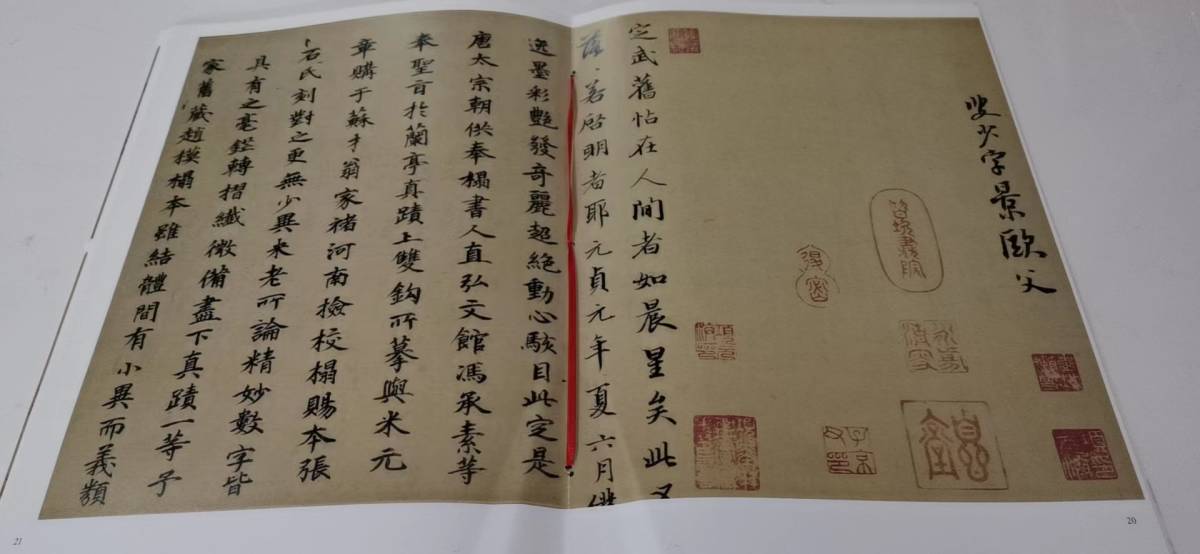 字景歐父
子京
父印
定武舊帖在人間者如晨星矣此又
落、若啓明者耶元貞元年夏六月
逸墨彩艶發奇麗超絕動心駭目此定是
唐太宗朝供奉搨書人直弘文館馮承素等
奉聖旨於蘭亭真蹟上雙鈎所摹與米元
章購于蘇才翁家禇河南檢校搨賜本張
石氏刻對之更無少異米老所論精妙數字皆
具有之毫鋩轉摺纖微備盡下真蹟一等予
家舊藏趙模搨本雖結體間有小異而義類
20
21